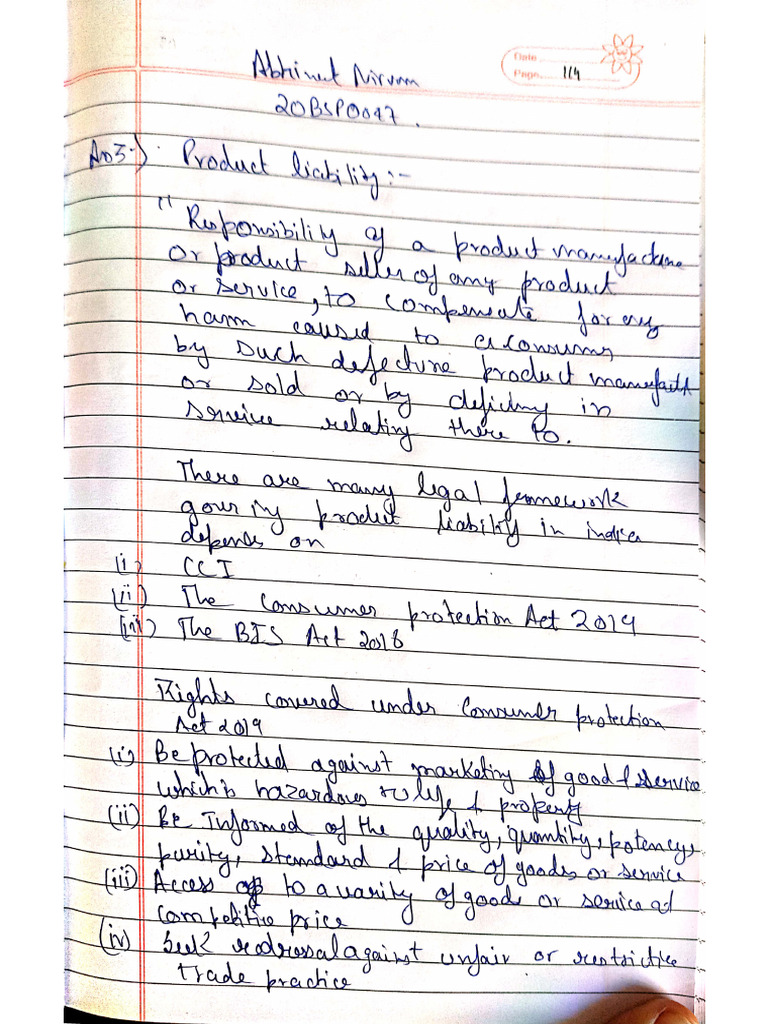 Date
Page 1/4
Abhinet Nirvan
20BSP0047.
Ans-) Product liability:-
" Responsibility of a product manufacture
or product seller of any product
or service, to compensate for any
harm caused to a consumer
by such defective product manufact
or sold or by deficincy in
service relating there to.
There are many legal framework
product liability in india
depends on
(i) CCI
(ii) The Consumer protection Act 2019
(iii) The BIS Act 2018
Rights covered under Consumer protection
Act 2019
(i) Be protected against marketing of good & service
which is hazardous to life & property
(ii) Be Informed of the quality, quantity, potency,
purity, standard & price of goods or service
(iii) Access to a varity of goods or service at
competitie price
(iv) Seek redressal against unfair or restrictive
trade practice